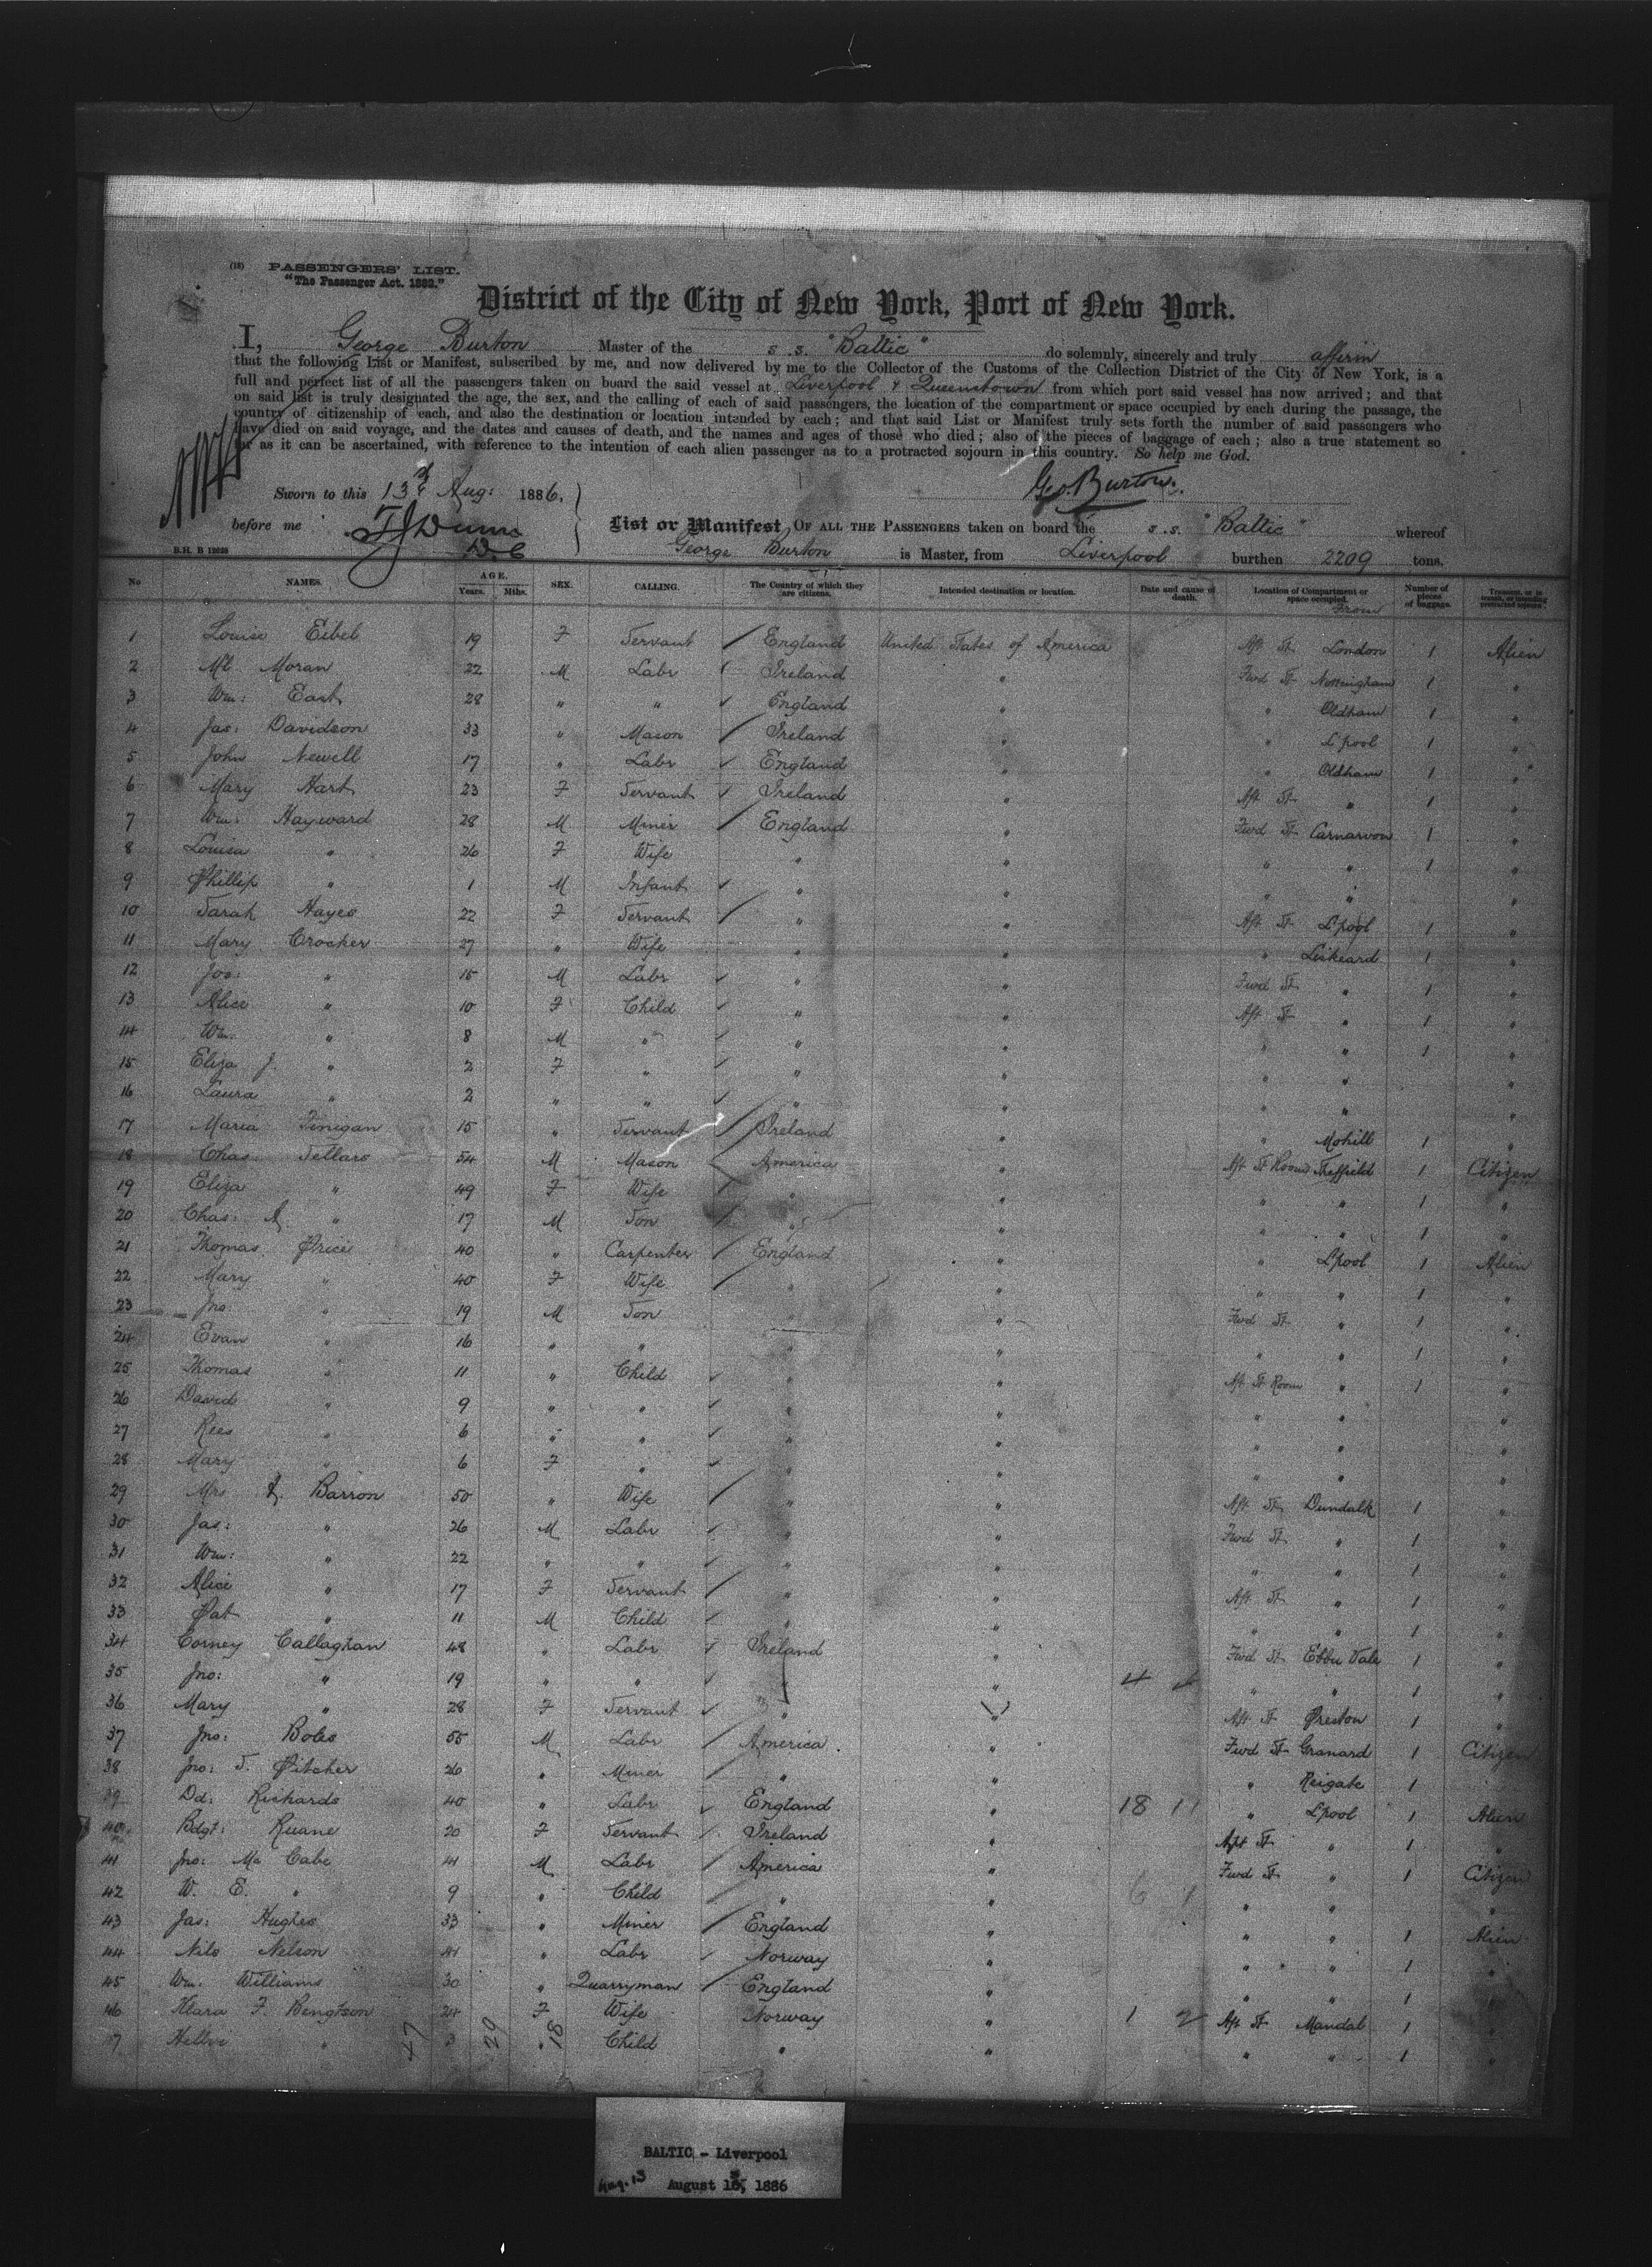 (18) PASSENGERS' LIST.
"The Passenger Act. 1882."
District of the City of New York, Port of New York.
I, George Burton Master of the s.s. "Baltic" do solemnly, sincerely and truly affirm
that the following List or Manifest, subscribed by me, and now delivered by me to the Collector of the Customs of the Collection District of the City of New York, is a
full and perfect list of all the passengers taken on board the said vessel at Liverpool & Queenstown from which port said vessel has now arrived; and that
on said list is truly designated the age, the sex, and the calling of each of said passengers, the location of the compartment or space occupied by each during the passage, the
country of citizenship of each, and also the destination or location intended by each; and that said List or Manifest truly sets forth the number of said passengers who
have died on said voyage, and the dates and causes of death, and the names and ages of those who died; also of the pieces of baggage of each; also a true statement so
far as it can be ascertained, with reference to the intention of each alien passenger as to a protracted sojourn in this country. So help me God.
Geo. Burton.
Sworn to this 13th Aug: 1886,
before me T J Dunn
D C
List or Manifest OF ALL THE PASSENGERS taken on board the s.s. "Baltic" whereof
B.H. B 12028 George Burton is Master, from Liverpool burthen 2209 tons.
No NAMES. AGE. Years. Mths. SEX. CALLING. The Country of which they are citizens. Intended destination or location. Date and cause of death. Location of Compartment or space occupied. From Number of pieces of baggage. Transient, or in transit, or intending protracted sojourn.
1 Louise Eibel 19 F Servant England United States of America Aft St London 1 Alien
2 Ml Moran 22 M Labr Ireland " Fwd St Nottingham 1 "
3 Wm: East 28 " " England " " Oldham 1 "
4 Jas: Davidson 33 " Mason Ireland " " L'pool 1 "
5 John Newell 17 " Labr England " " Oldham 1 "
6 Mary Hart 23 F Servant Ireland " Aft St " 1 "
7 Wm: Hayward 28 M Miner England " Fwd St Carnarvon 1 "
8 Louisa " 26 F Wife " " " " 1 "
9 Phillip " 1 M Infant " " " " "
10 Sarah Hayes 22 F Servant " " Aft St L'pool 1 "
11 Mary Crocker 27 " Wife " " " Liskeard 1 "
12 Jos: " 15 M Labr " " Fwd St " 1 "
13 Alice " 10 F Child " " Aft St " 1 "
14 Wm: " 8 M " " " " " 1 "
15 Eliza J. " 2 F " " " " " "
16 Laura " 2 " " " " " " "
17 Maria Finigan 15 " Servant Ireland " " Mohill 1 "
18 Chas. Sellars 54 M Mason America " Aft St Room Sheffield 1 Citizen
19 Eliza " 49 F Wife " " " " 1 "
20 Chas: A " 17 M Son " " " " 1 "
21 Thomas Price 40 " Carpenter England " " L'pool 1 Alien
22 Mary " 40 F Wife " " " " 1 "
23 Jno: " 19 M Son " " Fwd St " 1 "
24 Evan " 16 " " " " " " 1 "
25 Thomas " 11 " Child " " Aft St Room " 1 "
26 David " 9 " " " " " " "
27 Rees " 6 " " " " " " "
28 Mary " 6 F " " " " " "
29 Mrs A. Barron 50 " Wife " " Aft St Dundalk 1 "
30 Jas: " 26 M Labr " " Fwd St " 1 "
31 Wm: " 22 " " " " " " 1 "
32 Alice " 17 F Servant " " Aft St " 1 "
33 Pat " 11 M Child " " " " 1 "
34 Corney Callaghan 48 " Labr Ireland " Fwd St Ebbu Vale 1 "
35 Jno: " 19 " " " " 4 " " 1 "
36 Mary " 28 F Servant " " Aft St Preston 1 "
37 Jno: Boles 55 M Labr America " Fwd St Granard 1 Citizen
38 Jno: S. Pitcher 26 " Miner " " " Reigate 1 "
39 Dd: Richards 40 " Labr England " 18 11 " L'pool 1 Alien
40 Bdgt: Ruane 20 F Servant Ireland " Aft St " 1 "
41 Jno: Mc Cabe 41 M Labr America " Fwd St " 1 Citizen
42 W. E. " 9 " Child " " 6 1 " " "
43 Jas: Hughes 33 " Miner England " " " 1 Alien
44 Nils Nelson 41 " Labr Norway " " " 1 "
45 Wm: Williams 30 " Quarryman England " " " 1 "
46 Klara F. Bengtson 24 F Wife Norway " 1 2 Aft St Mandal 1 "
7 Hellvi " 3 " Child " " " " 1 "
47 29 18
BALTIC - Liverpool
Aug. 13 August 13, 1886